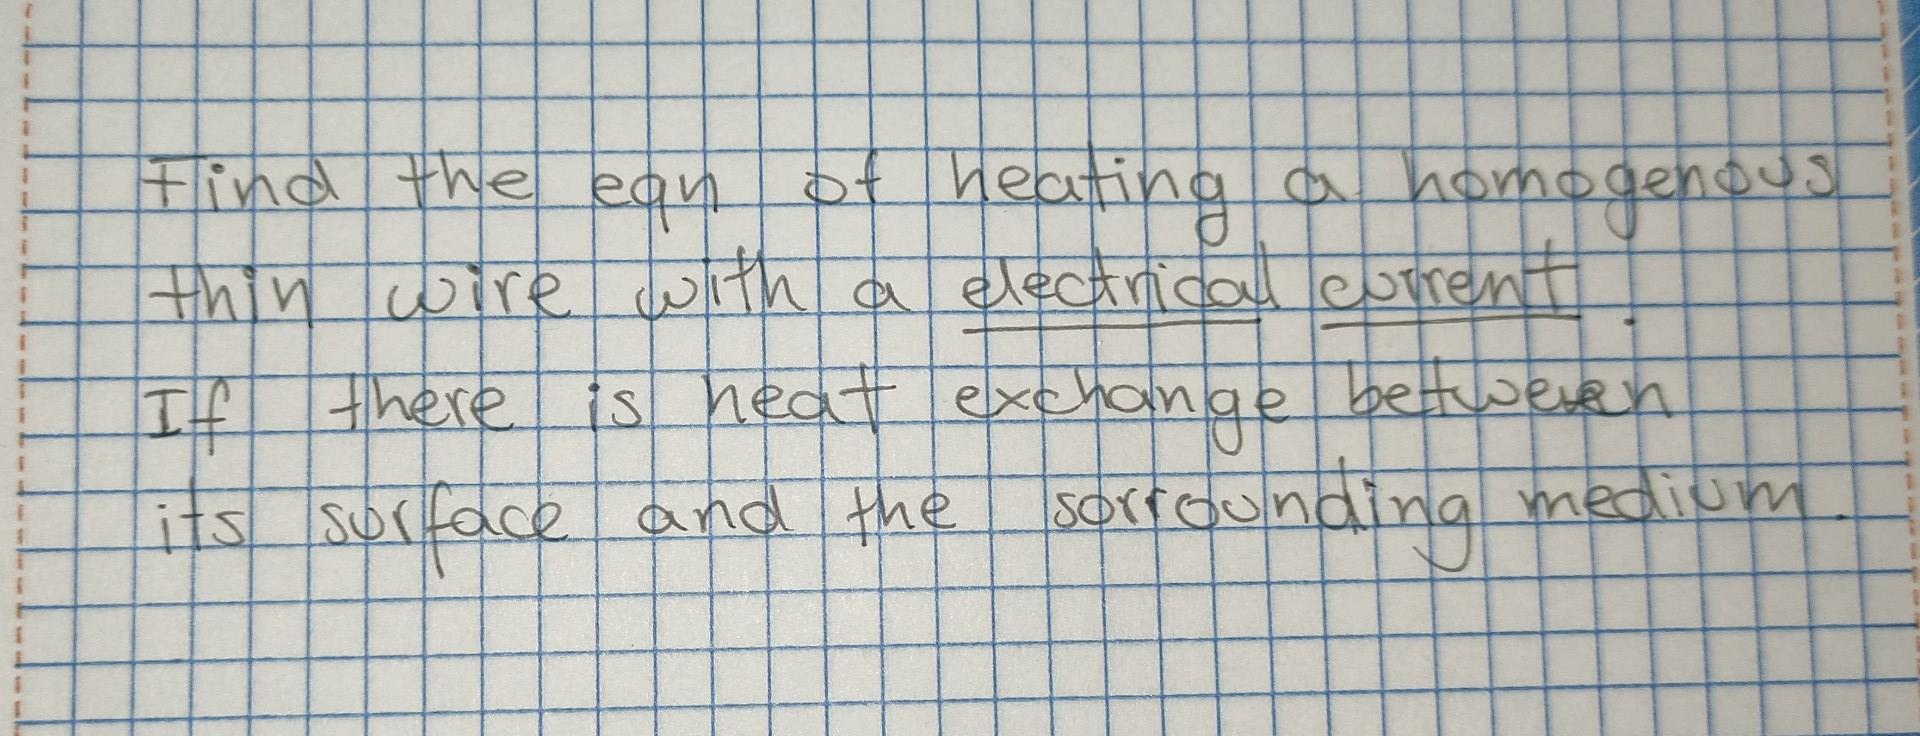 Find the eqn of heating a homogenous
thin wire with a electrical current.
If there is heat exchange between
its surface and the sorrounding medium.